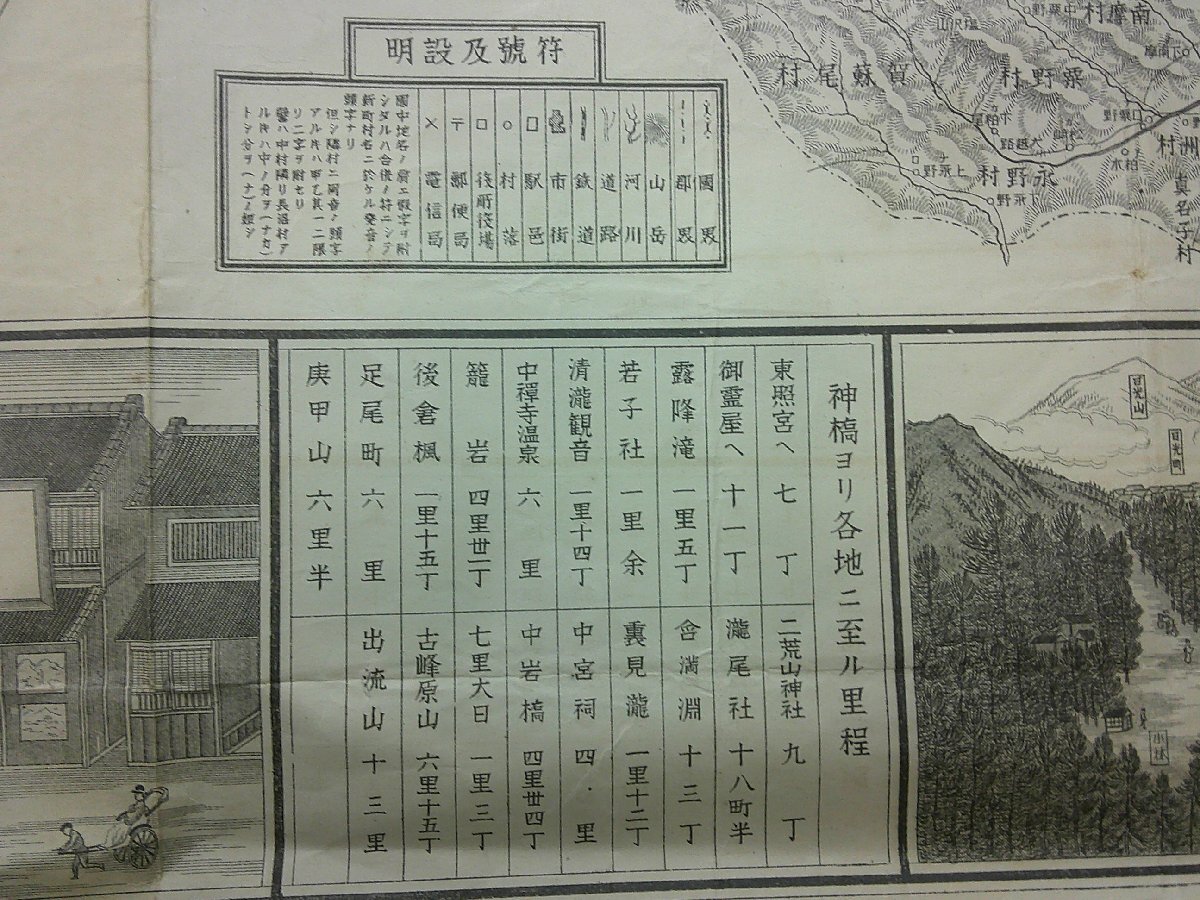 符號及設明
國界
郡界
山岳
河川
道路
鉄道
市街
駅邑
村落
役所役場
郵便局
電信局
國中地名ノ肩ニ假字ヲ附
シタルハ合併ノ符ニシテ
新町村名ニ於ケル発音ノ
頭字ナリ
但シ隣村ニ同音ノ頭字
アルキハ甲乙其一ニ限
リ二字ヲ附セリ
ルキハ中ノ分ヲ(ナカ)
南摩村
粟野村
賀蘇尾村
永野村
上永野
下永野
大越路
柏木
真名子村
洲村
神橋ヨリ各地ニ至ル里程
東照宮へ 七丁
御霊屋へ 十一丁
露降滝 一里五丁
若子社 一里余
清瀧観音 一里十四丁
中禪寺温泉 六里
籠岩 四里丗二丁
後倉楓 一里十五丁
足尾町 六里
庚甲山 六里半
二荒山神社 九丁
瀧尾社 十八町半
含満淵 十三丁
裏見瀧 一里十二丁
中宮祠 四里
中岩橋 四里丗四丁
七里大日 一里三丁
古峰原山 六里十五丁
出流山 十三里
日光山
小林